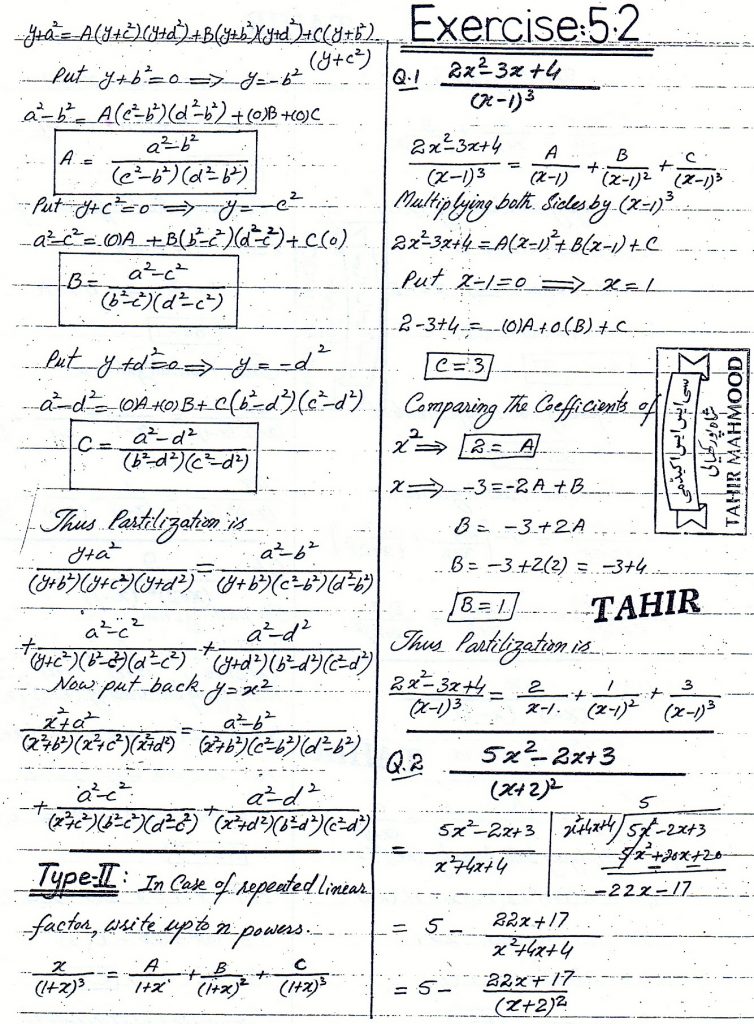 y+a² = A(y+c²)(y+d²)+B(y+b²)(y+d²)+C(y+b²)
(y+c²)
Put y+b²=0 ⟹ y=-b²
a²-b² = A(c²-b²)(d²-b²)+(0)B+(0)C
A = (a²-b²)/((c²-b²)(d²-b²))
Put y+c²=0 ⟹ y=-c²
a²-c² = (0)A + B(b²-c²)(d²-c²)+C(0)
B = (a²-c²)/((b²-c²)(d²-c²))
Put y+d²=0 ⟹ y = -d²
a²-d² = (0)A+(0)B+ C(b²-d²)(c²-d²)
C = (a²-d²)/((b²-d²)(c²-d²))
Thus Partilization is
(y+a²)/((y+b²)(y+c²)(y+d²)) = (a²-b²)/((y+b²)(c²-b²)(d²-b²))
+ (a²-c²)/((y+c²)(b²-c²)(d²-c²)) + (a²-d²)/((y+d²)(b²-d²)(c²-d²))
Now put back y=x²
(x²+a²)/((x²+b²)(x²+c²)(x²+d²)) = (a²-b²)/((x²+b²)(c²-b²)(d²-b²))
+ (a²-c²)/((x²+c²)(b²-c²)(d²-c²)) + (a²-d²)/((x²+d²)(b²-d²)(c²-d²))
Type-II: In Case of repeated linear
factor, write upto n powers.
x/(1+x)³ = A/(1+x) + B/(1+x)² + C/(1+x)³
Exercise:5.2
Q.1 (2x²-3x+4)/(x-1)³
(2x²-3x+4)/(x-1)³ = A/(x-1) + B/(x-1)² + C/(x-1)³
Multiplying both Sides by (x-1)³
2x²-3x+4 = A(x-1)²+B(x-1)+C
Put x-1=0 ⟹ x=1
2-3+4 = (0)A+0(B)+C
C=3
Comparing The Coefficients of
x² ⟹ 2 = A
x ⟹ -3=-2A+B
B = -3+2A
B = -3+2(2) = -3+4
B=1
Thus Partilization is
(2x²-3x+4)/(x-1)³ = 2/(x-1) + 1/(x-1)² + 3/(x-1)³
سی ایس ایس اکیڈمی
TAHIR MAHMOOD
TAHIR
Q.2 (5x²-2x+3)/(x+2)²
= (5x²-2x+3)/(x²+4x+4)
5
x²+4x+4)5x²-2x+3
5x²+20x+20
-22x-17
= 5 - (22x+17)/(x²+4x+4)
= 5- (22x+17)/(x+2)²